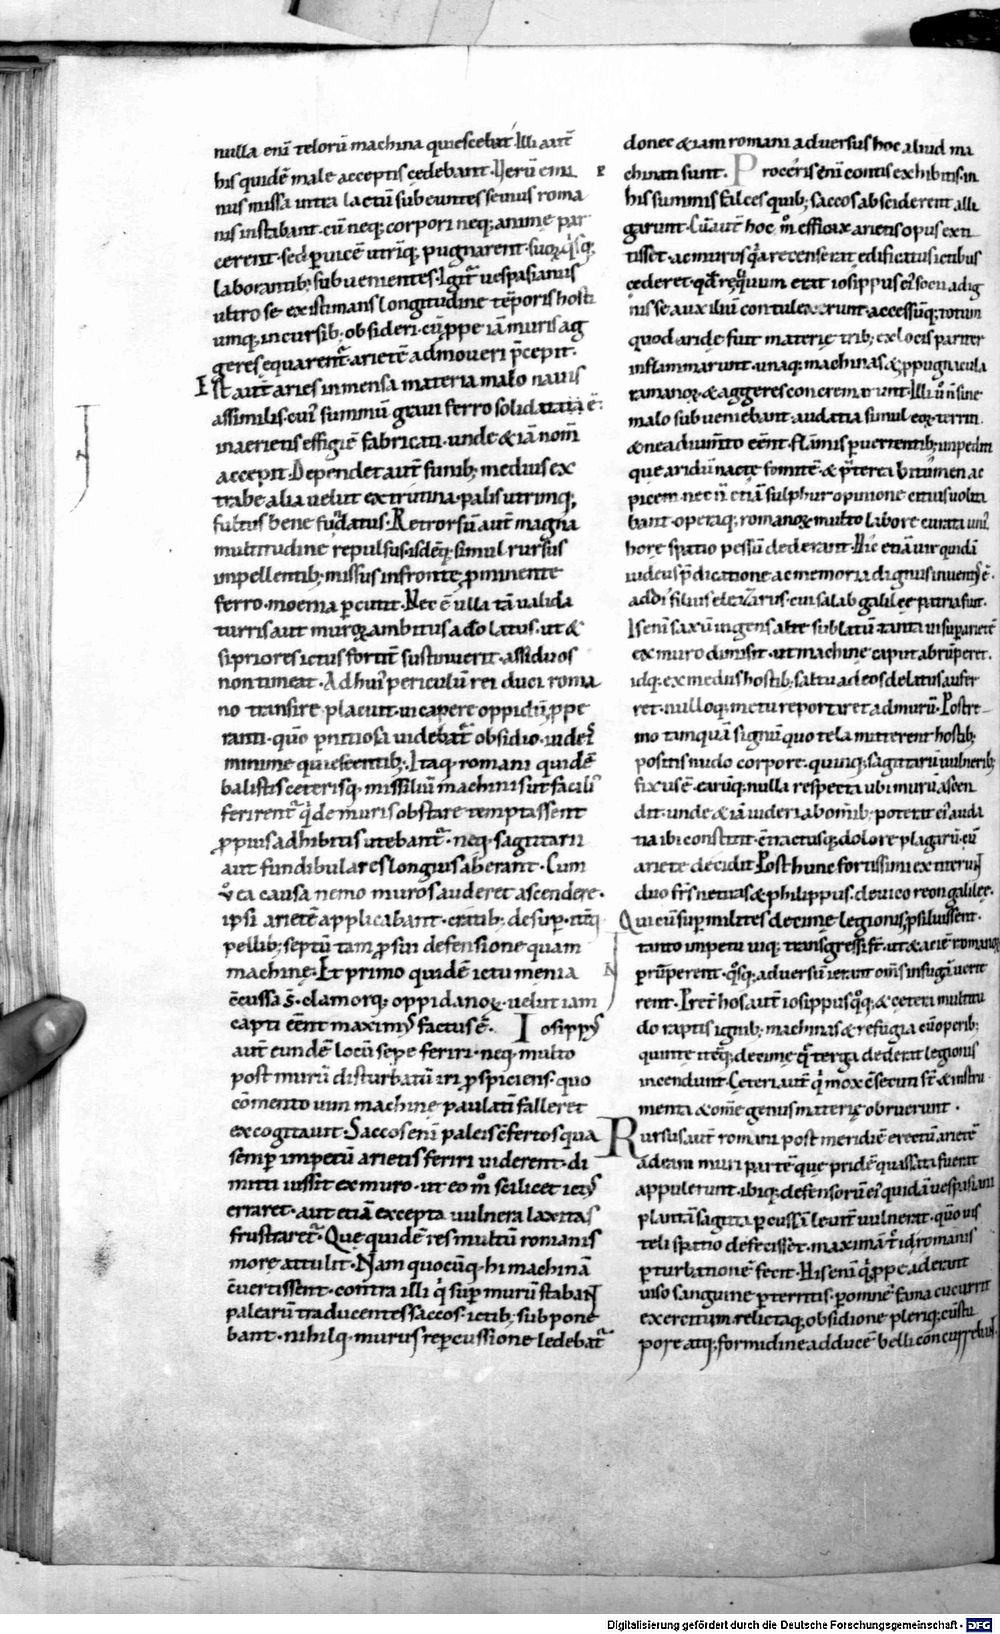 nulla eni telorū machina quiescebat. Illi aut̄
his quidē male acceptis cedebant. Verū emi
nus missa intra lactū subeuntes sevius roma
nis instabant. cū neq; corpori neq; anime par
cerent. sed p uicē utriq; pugnarent. suoꝝ q̇sq;
laborantib; subuenientes. Igit̄ uespasianus
ultro se existimans longitudine tēporis hosti
umq; incursib; obsideri. cū ꝓpe iā muris ag
geres equarent̄. arietē admoueri p̄cepit.
Est aut̄ aries inmensa materia malo nauis
assimilis. cui' summū graui ferro solidatū ē:
in arietis effigiē fabricati. unde & iā nom̄
accepit. Dependet aut̄ funib; medius ex
trabe alia uelut ex trutina. palis utrimq;
fultus bene fundatus. Retrorsū aut̄ magna
multitudine repulsus. isdēq; simul rursus
impellentib; missus in fronte ꝓminente
ferro. moenia p cutit. Nec ē ulla tā ualida
turris aut muroꝝ ambitus adeo latus. ut &
si priores ictus fortit̄ sustinuerit. assiduos
non timeat. Ad hui' periculū rei duci roma
no transire placuit. ui capere oppidū ꝓpe
ranti. quō pnitiosa uidebat̄ obsidio. iudeis
minime quiescentib;. Itaq; romani quidē
balistis ceterisq; missiliū machinis ut facili'
ferirent̄ qui de muris obstare temptassent
ꝓpius adhibitis utebant̄. neq; sagittarii
aut fundibulares longius aberant. Cum
v ea causa nemo muros auderet ascendere.
ipsi arietē applicabant. cratib; desup. itēq;
pellib; septū tam ꝓ sui defensione quam
machinę. Et primo quidē ictu menia
ccussa s̄. clamorq; oppidanoꝝ. uelut iam
capti eēnt maxim' factus ē. Iosipp'
aut̄ eundē locū sepe feriri. neq; multo
post murū disturbatū iri ꝓspiciens. quo
cōmento uim machine paulatī falleret
excogitauit. Saccos eni paleis cfertos qua
semp impetū arietis feriri uiderent. di
mitti iussit ex muro. ut eo m̊ scilicet ict'
erraret. aut etiā excepta uulnera laxitas
frustraret̄. Que quidē res multū romanis
more attulit. Nam quocūq; hi machinā
cuertissent. contra illi qi sup murū stabant
palearū traducentes saccos. ictib; subpone
bant. nihilq; murus repcussione ledebat̄
donec & iam romani adversus hoc aliud ma
chinati sunt. Proceris eni contis exhibitis. in
his summis falces quib; saccos absciderent alli
garunt. Cū aut̄ hoc m̊ efficax arietis opus exti
tisset. ac murus qa recens erat edificatus ictibus
cederet. qd̄ reliquum erat iosippus ei' socii ad ig
nis se auxiliū contulexerunt. accessūq; totum
quod aride fuit materię trib; ex locis pariter
inflammarunt. unaq; machinas & ꝓpugnacula
romanoꝝ. & aggeres concremarunt. Illi ū n̄ sine
malo subueniebant. audatia simul eoꝝ territi.
& ne adiumto eēnt. flāmis puertentib; impediti
que aridū nacte fomitē. & p̄terea bitumen ac
picem. nec n̄ etiā sulphur opinione citius volita
bant. operaq; romanoꝝ multo labore curata uni'
hore spatio pessū dederant. Hic etiā uir quidā
iudeus p̄dicatione ac memoria dignus inuent' ē.
addi filius eleazarus. cui salab galilee patria fuit.
Is eni saxū ingens alte sublatū tanta ui sup arietē
ex muro dimisit. ut machine caput abrūperet.
idq; ex mediis hostib; saltu ad eos delatus aufer
ret. nulloq; metu reportaret ad murū. Postre
mo tanquā signū quo tela mitterent hostib;
positus nudo corpore. quinq; sagittarū uulnerib;
fixus ē. earūq; nulla respecta ubi murū ascen
dit. unde & iā uideri ab omib; poterit ei' auda
tia ibi constitit. c̄tractusq; dolore plagarū cū
ariete decidit. Post hunc fortissimi extiterunt
duo fr̄s netiras & philippus. de uico reon galilee.
Qui cū sup milites decime legionis ꝓsiluissent.
tanto impetu uiq; transgressi st̄. ut & aciē romanoꝝ
prūperent. qosq; adversū ierant om̄s in fugā uerte
rent. Pret̄ hos aut̄ iosippus qoq; & cetera multitu
do raptis ignib; machinas & refugia cū operib;
quinte itēq; decime q̄ terga dederat legionis
incendunt. Ceteri aut̄ qi mox csecuti st̄. & instru
menta & omē genus materię obruerunt.
Rursus aut̄ romani post meridiē erectū arietē
ad eam muri partē que pridē quassata fuerat
appulerunt. ibiq; defensorū ei' quidā uespasiani
plantā sagitta p cussā leuit̄ uulnerat. quō uis
teli spatio defecisset. maximā t̄ id romanis
pturbationē fecit. His eni qi ꝓpe aderant
uiso sanguine p territis. p omnē fama cucurrit
exercitum. relictaq; obsidione pleriq; cū stu
pore atq; formidine ad ducē belli concurrebant.